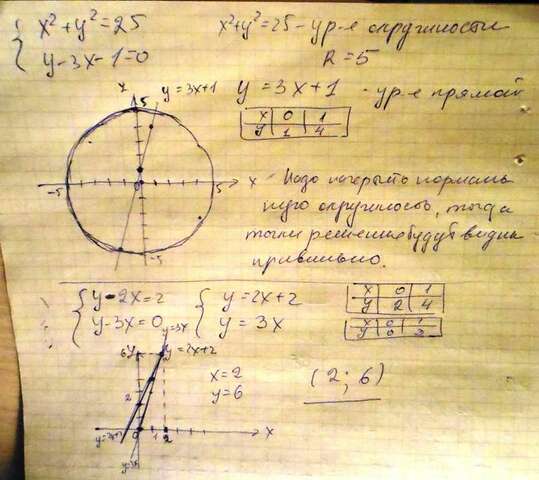 { x²+y²=25
y-3x-1=0
x²+y²=25 - ур-е окружности
R=5
y=3x+1 - ур-е прямой
x 0 1
y 1 4
5
y=3x+1
-5
0
5
x
-5
Надо начертить нормаль
ную окружность, тогда
точки решение будут видны
правильно.
{ y-2x=2
y-3x=0
{ y=2x+2
y=3x
x 0 1
y 2 4
x 0 1
y 0 3
y=3x
6
y
y=2x+2
2
x=2
y=6
(2; 6)
0
1
2
x